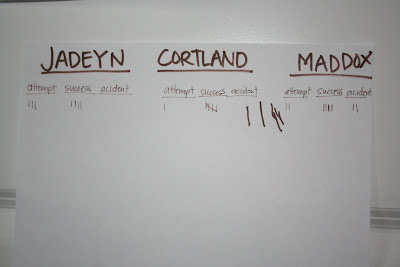 JADEYN CORTLAND MADDOX
attempt success acident attempt success accident attempt success acident